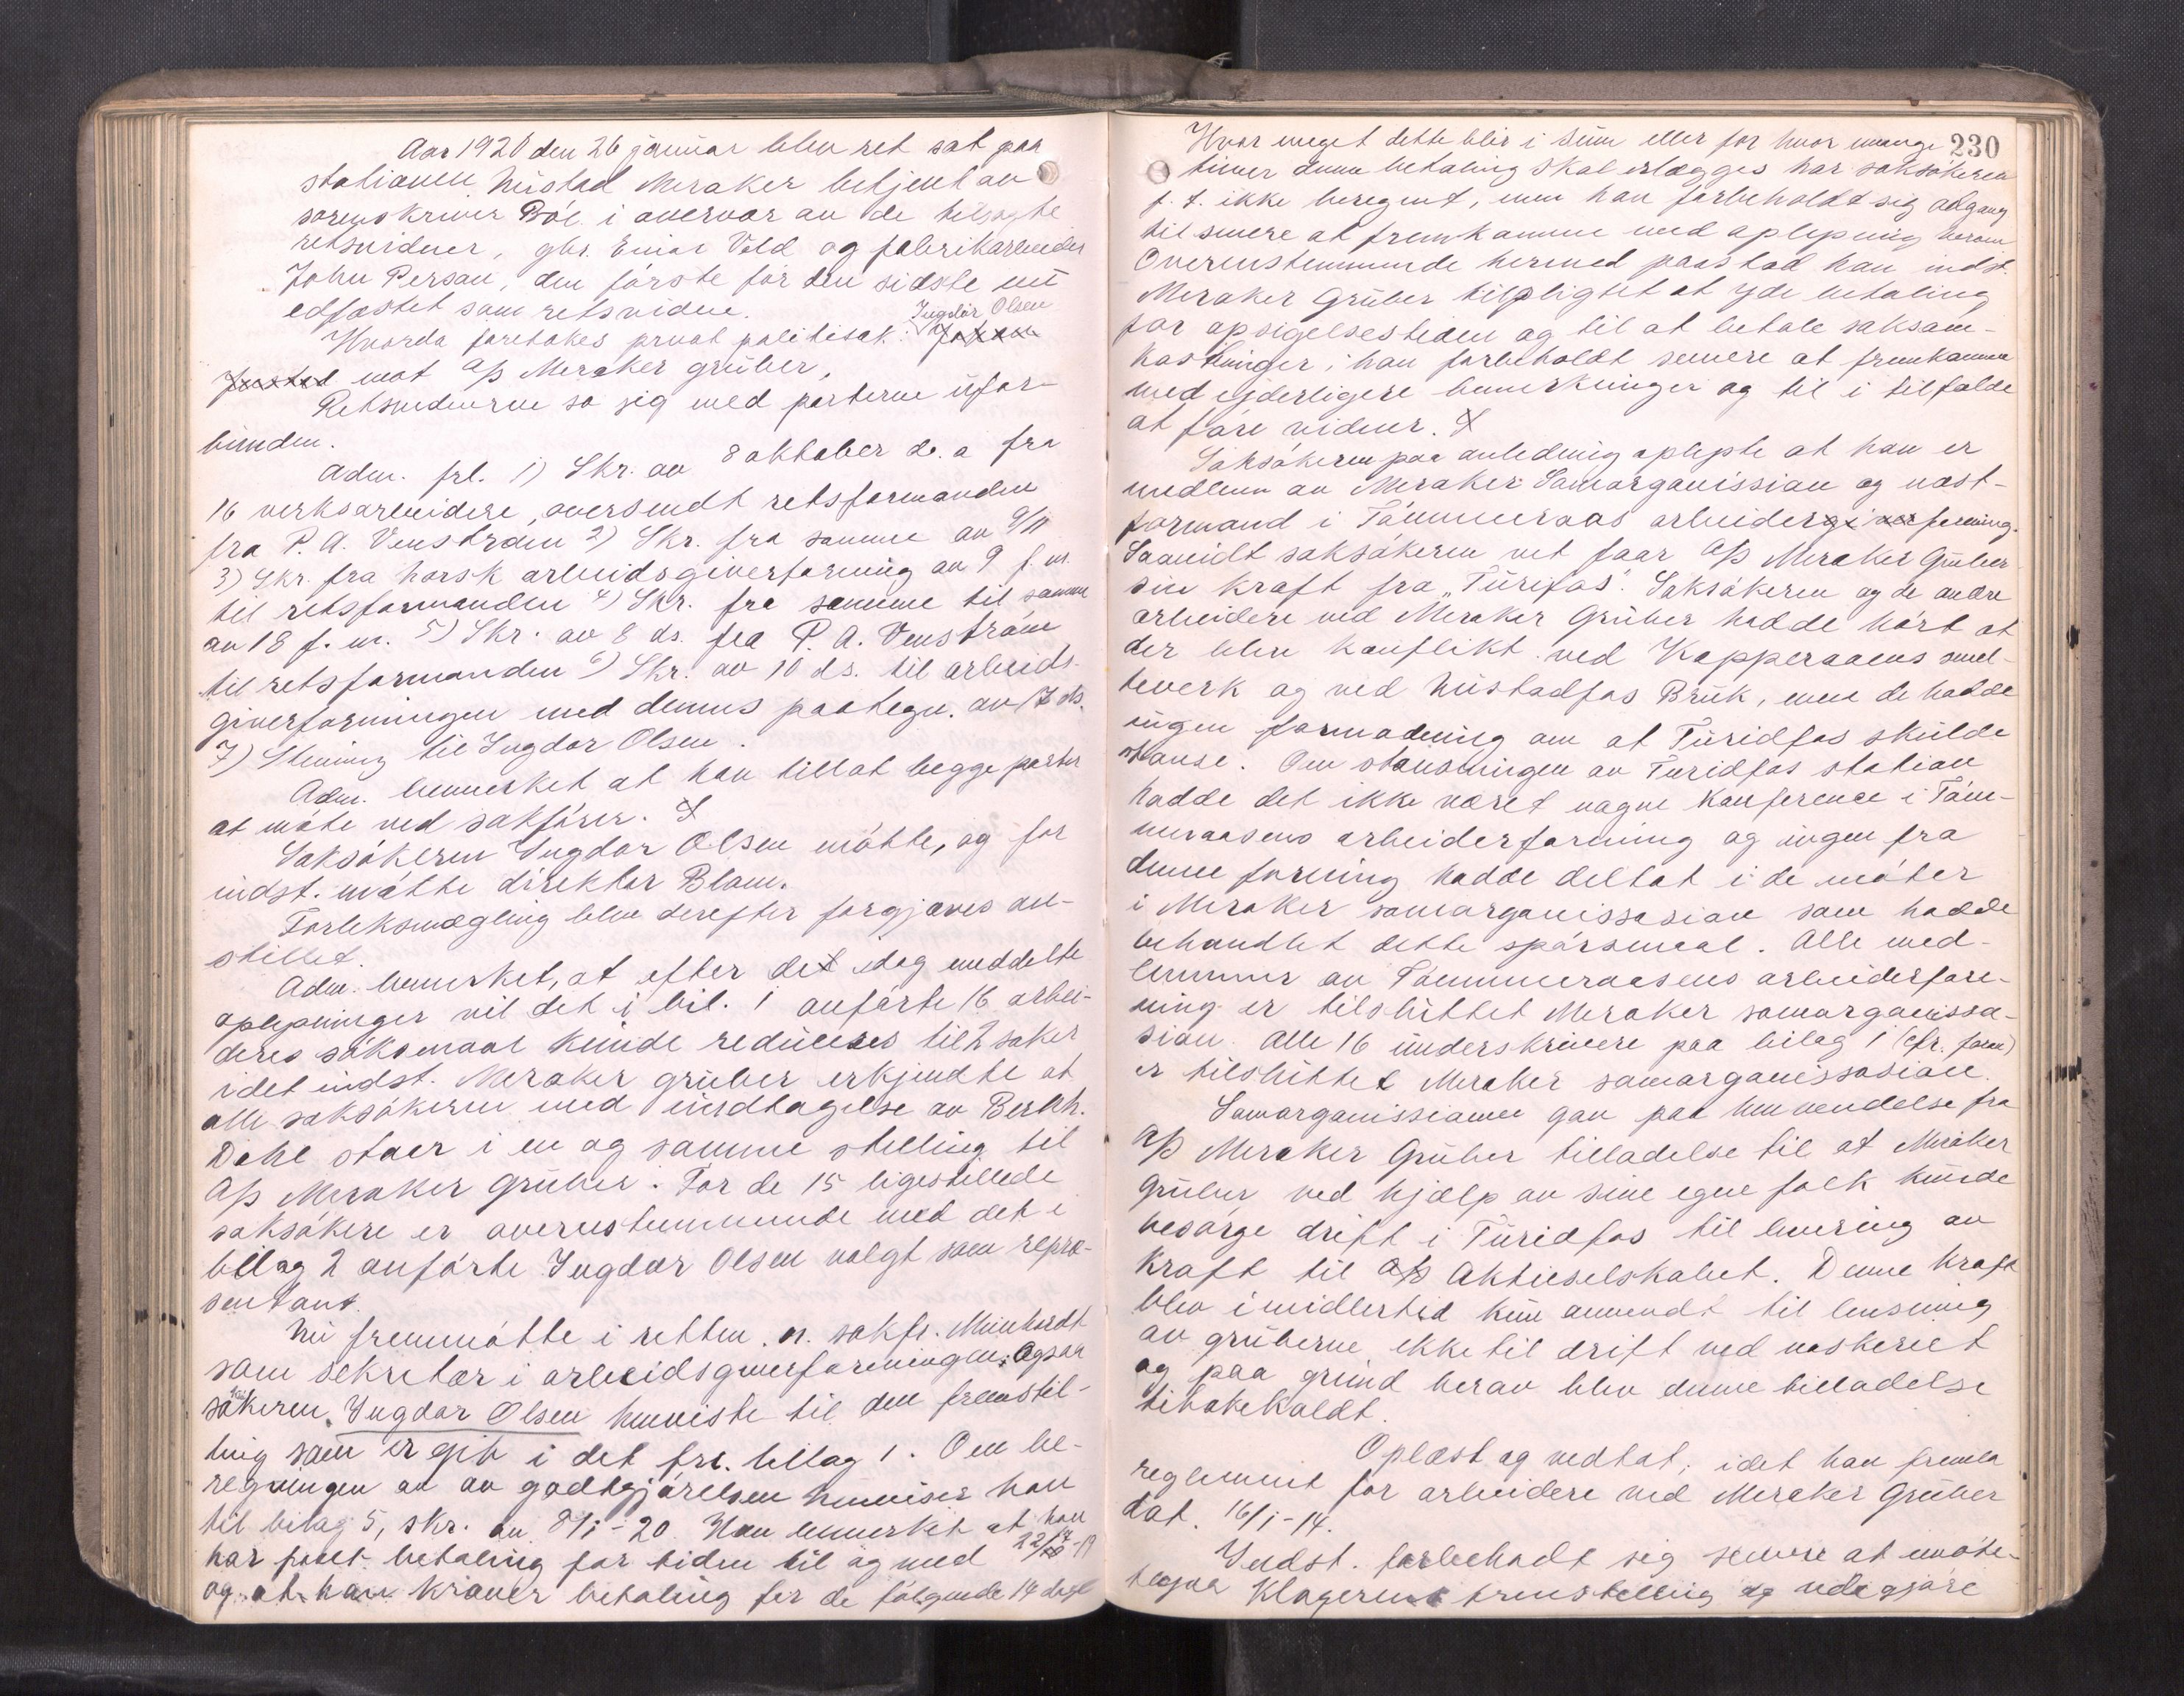 Aar 1920 den 26 januar blev ret sat paa
stationen Nustad Meraker betjent av
sorenskriver Böe i overvær av de tilsagte
retsvidner, gbr. Einar Vold og fabrikarbeider
John Persen, den förste for den sidste nu
edfæstet som retsvidne.
Hvorda foretokes privat politisak: Ingdör Olsen
mot A/S Meraker grüber,
Retsvidnerne sa sig med parterne ufor-
bunden.
Adm. frl. 1) Skr. av 8 oktober d. a fra
16 verksarbeidere, oversendt retsformanden
fra P. A. Venström 2) Skr. fra samme av 9/11
3) Skr. fra norsk arbeidsgiverforening av 9 f. m.
til retsformanden 4) Skr. fra samme til samme
av 18 f. m. 5) Skr. av 8 ds. fra P. A. Venström
til retsformanden 6) Skr. av 10 ds. til arbeids-
giverforeningen med dennes paategn. av 17 ds.
7) Stevning til Ingdor Olsen.
Adm. bemerket at han tillot begge parter
at möte ved sakförer.
Saksökeren Ingdor Olsen mötte, og for
indst. mötte direktör Blom.
Forliksmægling blev derefter forgjæves an-
stillet.
Adm. bemerket, at efter det idag meddelte
oplysninger vil det i bil. 1 anförte 16 arbei-
deres söksmaal kunde reduceres til 2 saker
idet indst. Meraker grüber erkjendte at
alle saksökeren med undtagelse av Bernh.
Dahl staar i en og samme stilling til
A/S Meraker grüber. For de 15 ligestillede
saksökere er overenstemmende med det i
bilag 2 anförte Ingdor Olsen valgt som repræ-
sentant.
Nu fremmötte i retten o. sakfr. Meinhardt
som sekretær i arbeidsgiverforeningen. Ogsaa
söksökeren Ingdor Olsen henviste til den fremstil-
ling som er git i det frl. bilag 1. Om be-
regningen av av godtgjörelsen henviser han
til bilag 5, skr. av 8/1-20. Han bemerket at han
har faaet betaling for tiden til og med 22/12-19
og at han kræver betaling for de fölgende 14 dage
230
Hvor meget dette blir i sum eller for hvor mange
timer denne betaling skal erlægges har saksökeren
f. t. ikke beregnet, men han forbeholdt sig adgang
til senere at fremkomme med oplysning herom
Overenstemmende hermed paastod han indst.
Meraker Grüber tilpligtet at yde betaling
for opsigelsestiden og til at betale saksom-
kostninger; han forbeholdt senere at fremkomme
med yderligere bemerkninger og til i tilfælde
at före vidner.
Saksökeren paa anledning oplyste at han er
medlem av Meraker Samorganissian og næst-
formand i Tömmeraas arbeiderforening.
Saavidt saksökeren vet faar A/S Meraker Grüber
sin kraft fra "Turifos". Saksökeren og de andre
arbeidere ved Meraker Grüber hadde hört at
der blev konflikt ved Kopperaaens smel-
teverk og ved Nustadfos Brük, men de hadde
ingen formodning om at Turidfos skulde
stanse. Om stansningen av Turidfos station
hadde det ikke været nogen konference i Töm-
meraasens arbeiderforening og ingen fra
denne forening hadde deltat i de möter
i Meraker samorganissasian som hadde
behandlet dette spörsmaal. Alle med-
lemmer av Tömmeraasens arbeiderfore-
ning er tilsluttet Meraker samorganissa-
sian. Alle 16 underskrivere paa bilag 1 (cfr. foran)
er tilsluttet Meraker samorganissasian.
Samorganissianen gav paa henvendelse fra
A/S Meraker Grüber tilladelse til at Meraker
Grüber ved hjælp av sine egne folk kunde
besörge drift i Turidfos til levering av
kraft til Aktieselskabet. Denne kraft
blev imidlertid kun anvendt til lensning
av gruberne ikke til drift ved vaskeriet
og paa grund herav blev denne tilladelse
tilbakekaldt.
Oplæst og vedtat, idet han fremla
reglement for arbeidere ved Meraker Grüber
dat. 16/1-14.
Indst. forbeholdt sig senere at imöte-
tegaa Klagerens fremstilling og nde gjöre